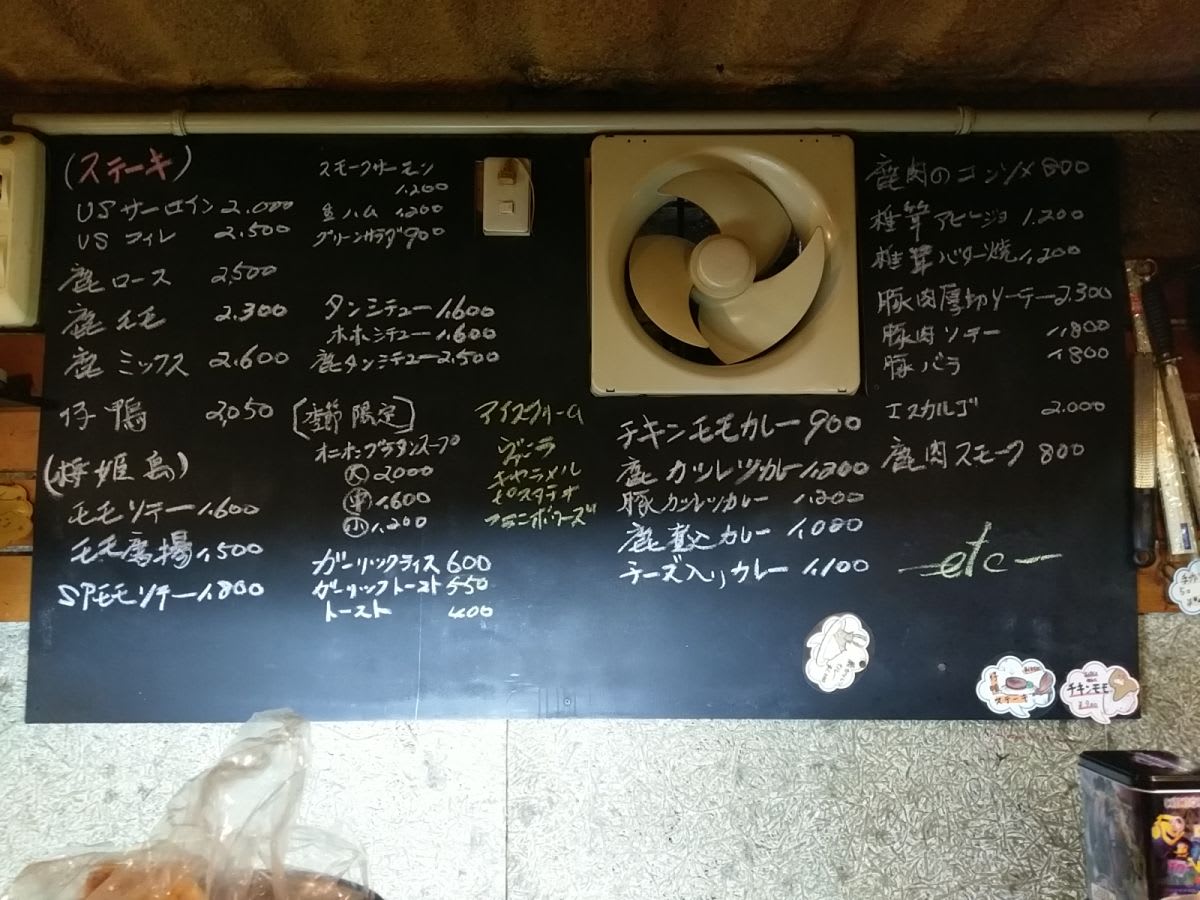 (ステーキ)
USサーロイン 2.000
US フィレ 2.500
鹿 ロース 2,500
鹿 モモ 2.300
鹿 ミックス 2.600
仔 鴨 2,050
(桜姫鳥)
モモソテー 1.600
モモ唐揚 1,500
SPモモソテー 1.800
スモークサーモン
1.200
生ハム 1,200
グリーンサラダ 900
タンシチュー 1,600
ホホシチュー 1.600
鹿タンシチュー 2,500
[季節限定]
オニオングラタンスープ
大 2000
中 1,600
小 1,200
ガーリックライス 600
ガーリックトースト 550
トースト 400
アイスクリーム
ヴァニラ
キャラメル
ピスタチオ
フランボワーズ
チキンモモカレー 900
鹿 カツレツカレー 1,200
豚カツレツカレー 1,200
鹿煮込カレー 1,080
チーズ入りカレー 1,100
鹿肉のコンソメ 800
椎茸アヒージョ 1.200
椎茸バター焼 1,200
豚肉厚切ソーテー 2.300
豚肉ソテー 1,800
豚バラ 1,800
エスカルゴ 2.000
鹿肉スモーク 800
etc
ステーキ
チキンモモ